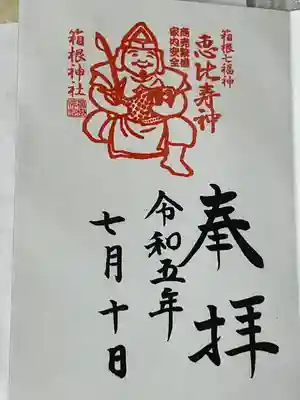 箱根七福神
恵比寿神
商売繁盛
家内安全
箱根神社
奉拝
令和五年
七月十日